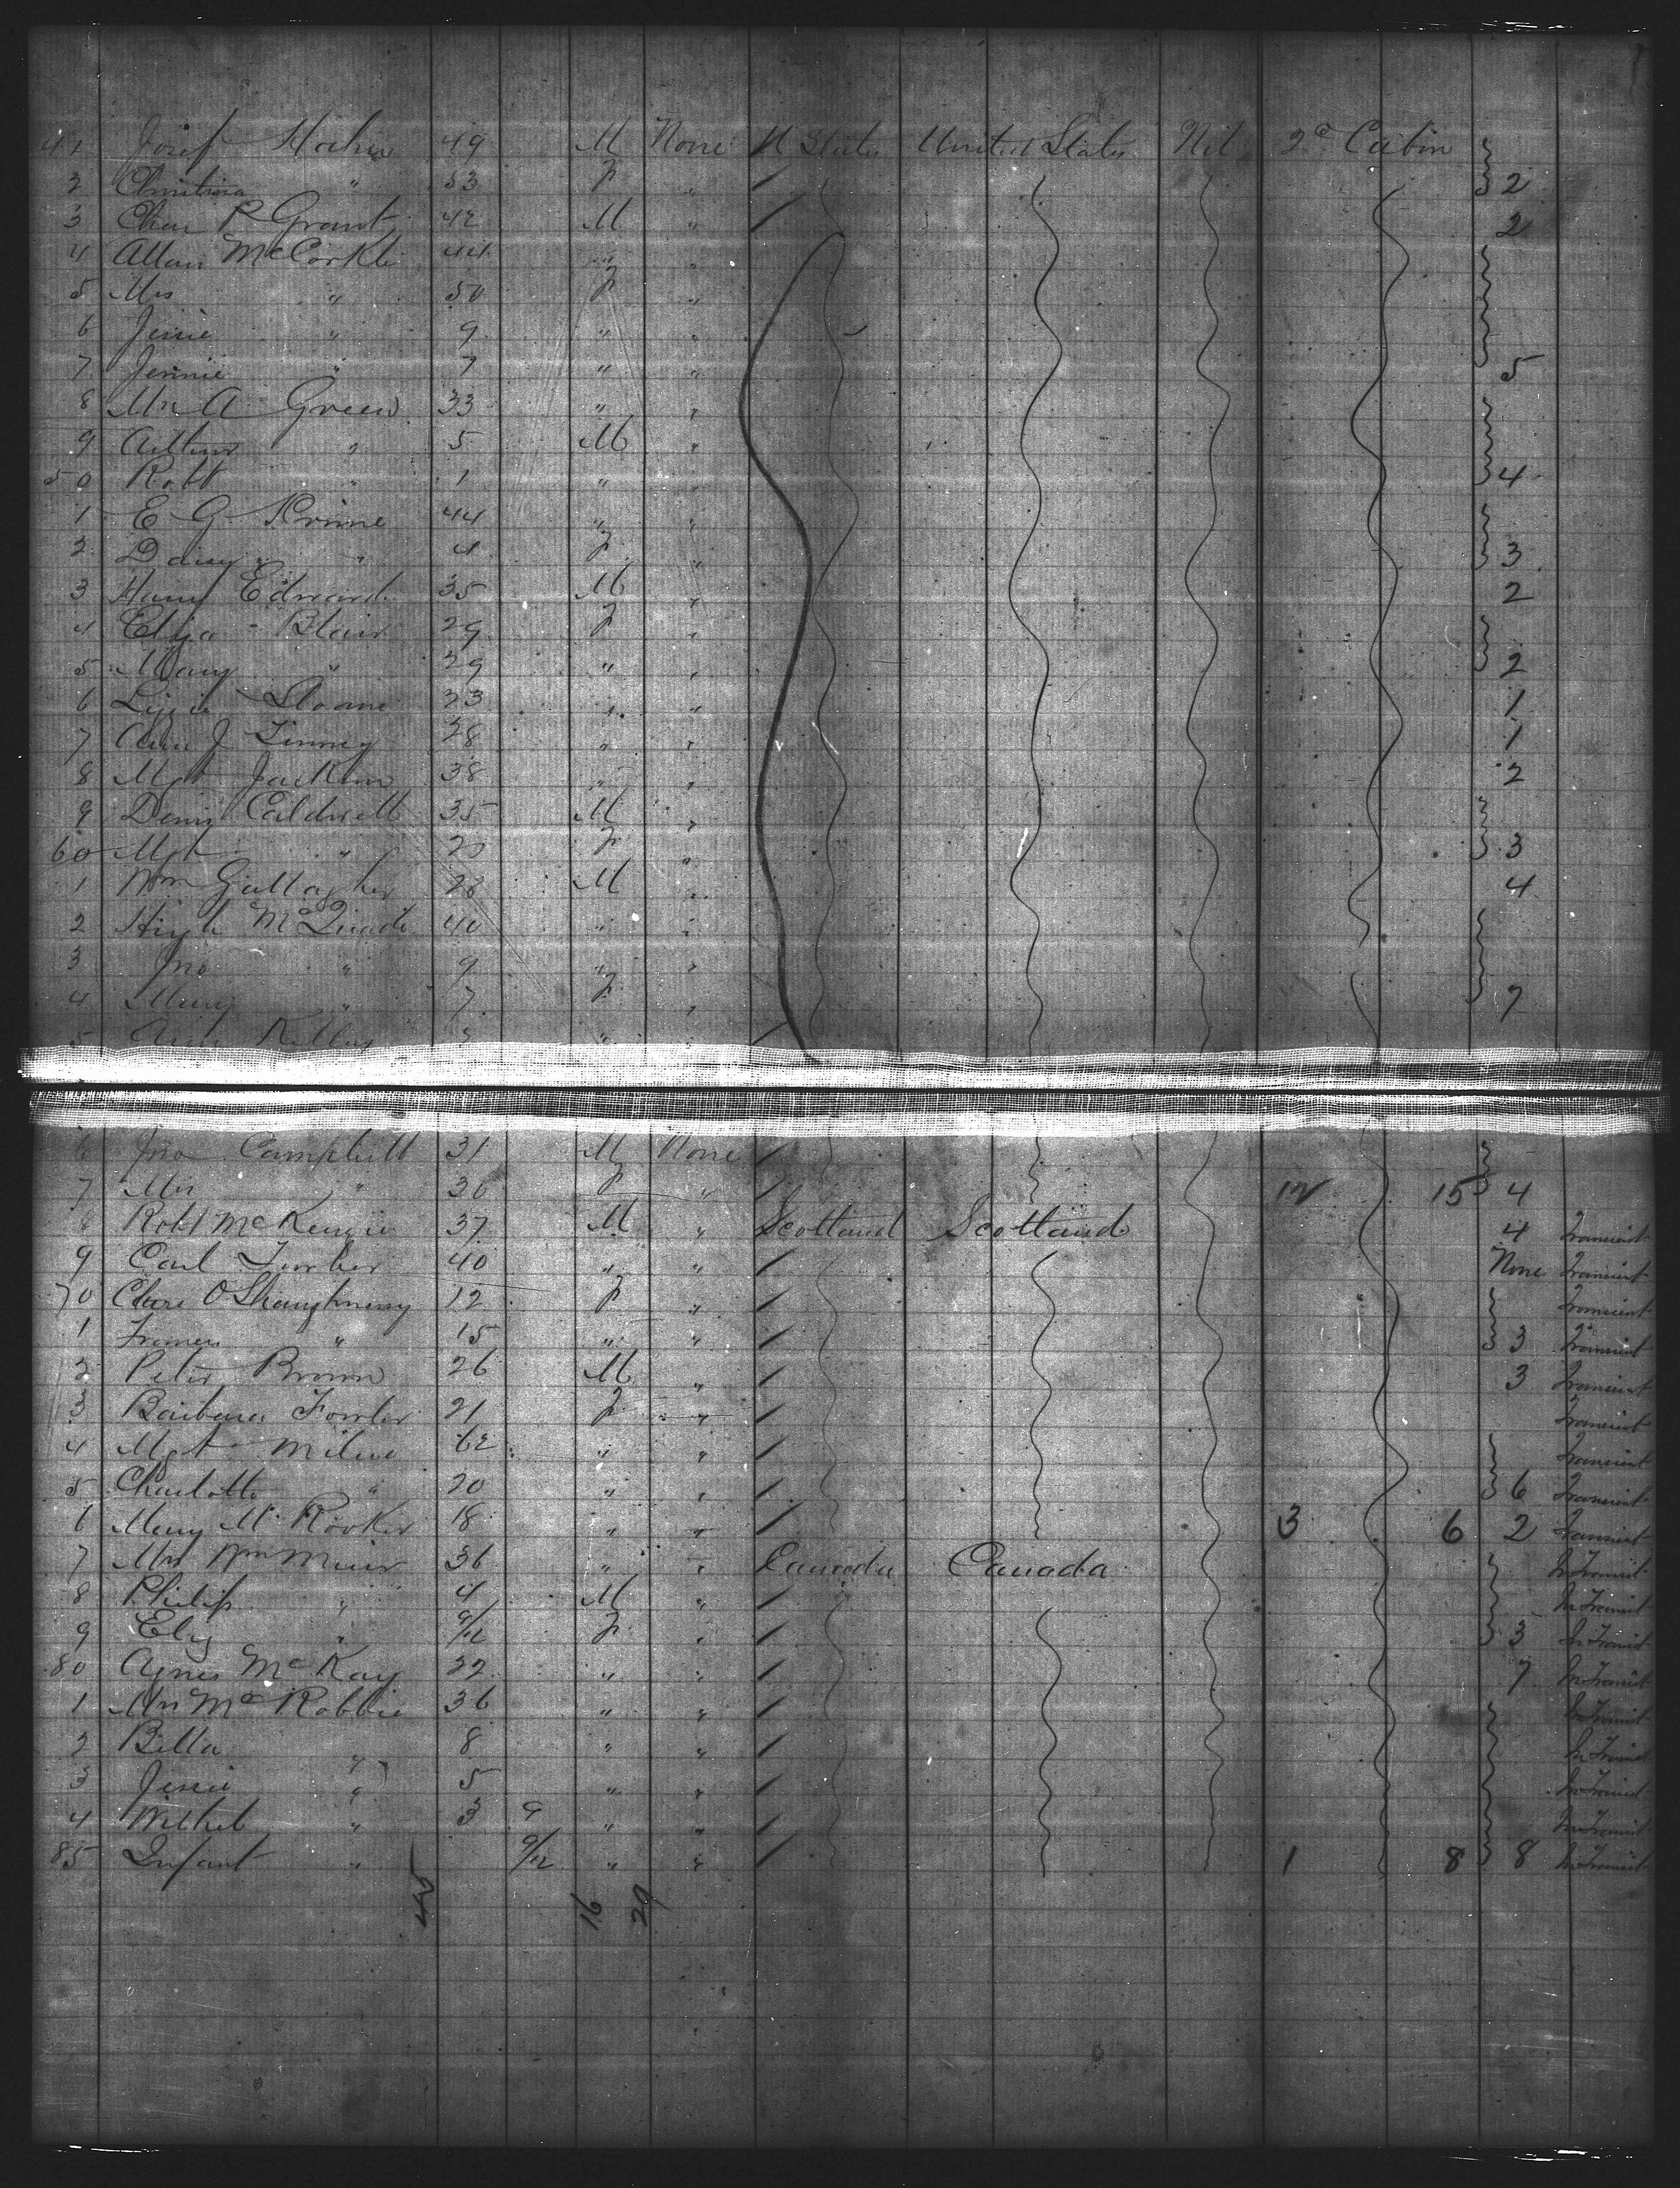 41 Josef 49 M None U States United States Nil 2d Cabin
2 Christina " 53 F " 2
3 Chas R Grant 42 M " 2
4 Allan McCorkle 44 " "
5 Mrs " 50 F "
6 Jessie " 9 " "
7 Jennie " 7 " " 5
8 Mrs A Green 33 " "
9 Arthur " 5 M "
50 Robt " 1 " " 4
1 E G 44 " "
2 Daisy " 4 F " 3
3 Harry Edward 35 M " 2
4 Eliza Blair 29 F "
5 Mary " 29 " " 2
6 Lizzie Sloane 23 " " 1
7 J Finney 28 " " 1
8 Mgt Jackson 38 " " 2
9 Caldwell 35 M "
60 Mgt " F " 3
1 Wm Gallagher 28 M " 4
2 Hugh McQuade 40 " "
3 Jno " 9 " "
4 Mary " 7 F " 7
5 "
6 Jno Campbell 31 M None
7 Mrs " 36 F " 12 15 4
8 Robt McKenzie 37 M " Scotland Scotland 4 Transient
9 Carl 40 " " None Transient
70 Clare O'Shaughnessy 12 F " Transient
1 Frances " 15 " " 3 Transient
2 Peter Brown 26 M " 3 Transient
3 Barbara Fowler 21 F " Transient
4 Mgt Milne 62 " " Transient
5 Charlotte " 20 " " 6 Transient
6 Mary 18 " " 3 6 2 Transient
7 Mrs Wm Muir 36 " " Canada Canada In Transit
8 Philip " 4 M " In Transit
9 Eliz " 9/12 F " 3 In Transit
80 Agnes McKay 22 " " 7 In Transit
1 Mrs McRobbie 36 " " In Transit
2 Bella " 8 " " In Transit
3 Jessie " 5 " " In Transit
4 " 3 9 " " In Transit
85 Infant " 9/12 " " 1 8 8 In Transit
45 16 29